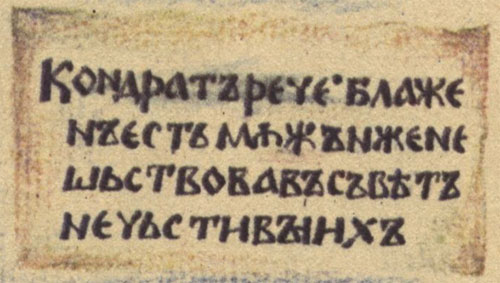 Кондратъ рече· блаже
нъ естъ мѫжъ иже не
шьствова въ съвѣтъ
нечьстивꙑихъ